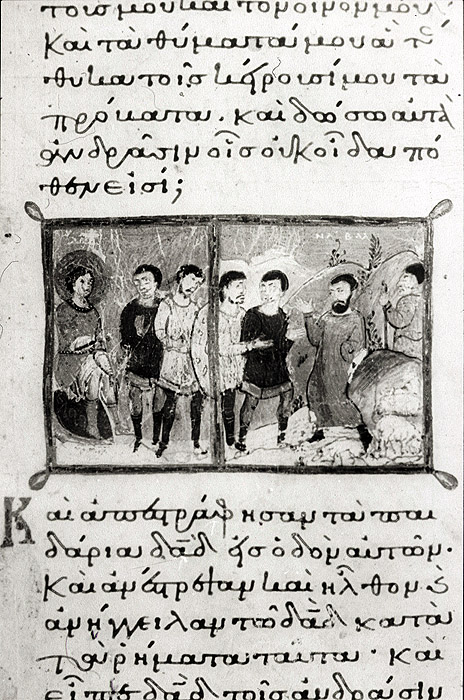 τους μου και τον οινον μου·
Και τα θύματα μου ἁ τέ
θυκα τοῖς κείρουσί μου τὰ
πρόβατα· καὶ δώσω αυτὰ
ἀνδράσιν οἷς οὐκ οἶδα πό
θεν εἰσί;
ΝΑΒΑΛ
Και ἀπεστράφησαν τὰ παι
δάρια δᾱδ εἰς ὁδὸν αὐτῶν·
Καὶ ἀνέστρεψαν καὶ ἦλθον ϗ
ἀνήγγειλαν τῶ δᾱδ κατὰ
τὰ ρήματα ταῦτα· Καὶ
εἶπε δᾱδ τοῖς ἀνδράσιν